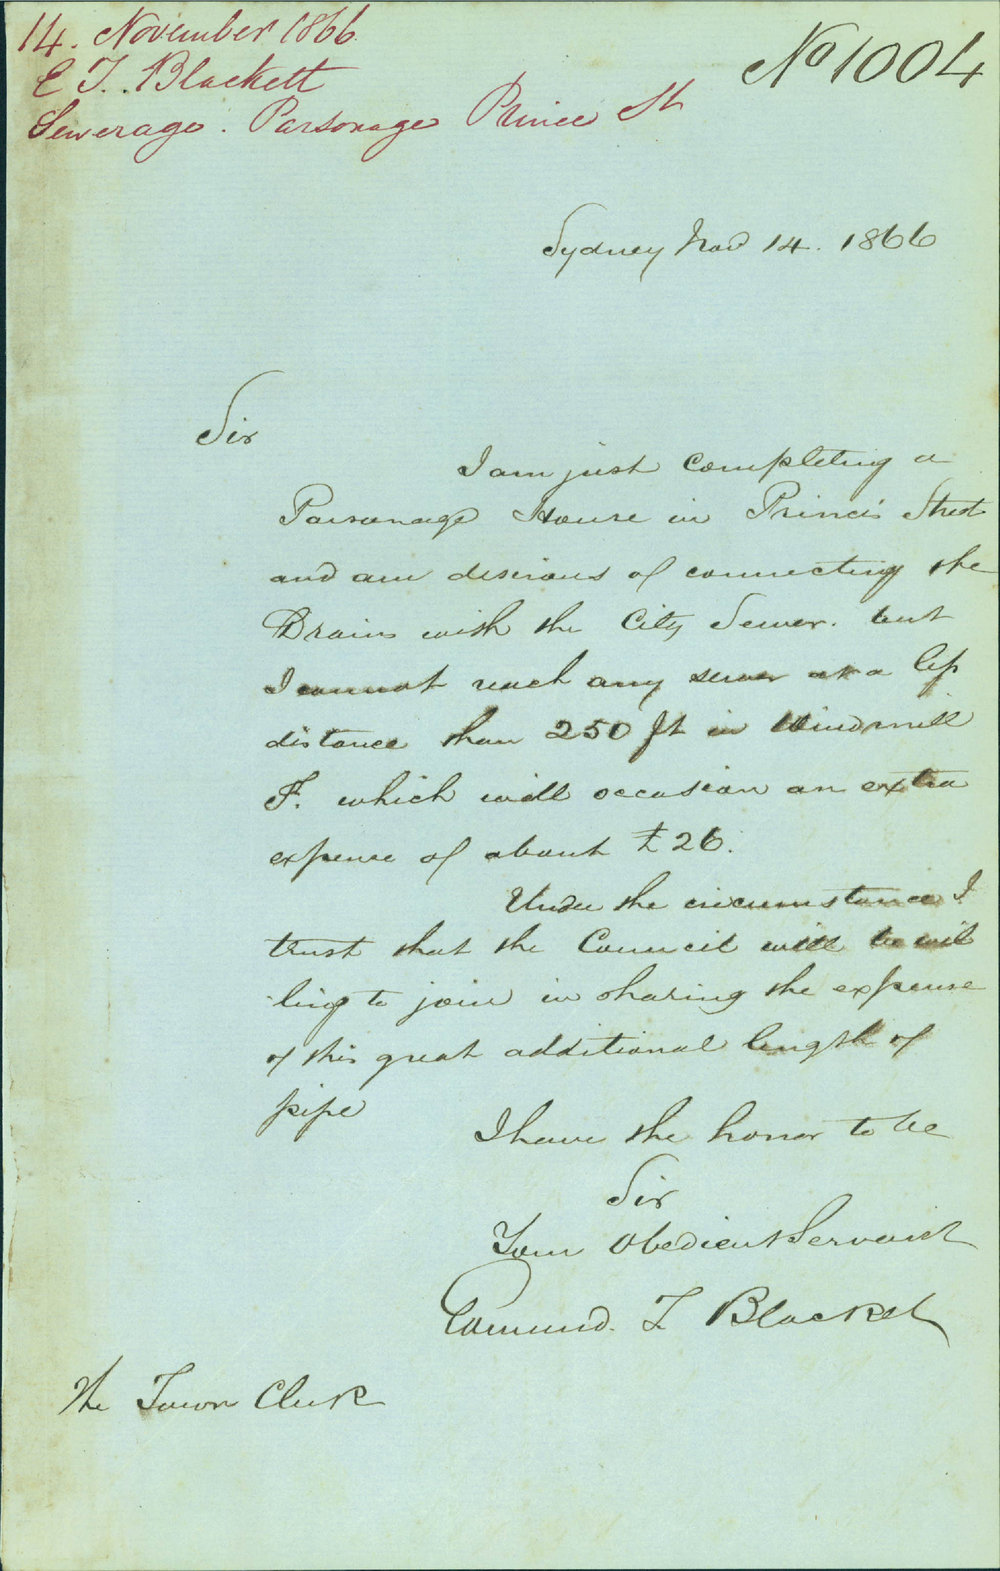 14. November 1866
E T. Blackett
Sewerage. Parsonage Prince St
No 1004
Sydney Nov 14. 1866
Sir
I am just completing a
Parsonage House in Princes Street
and am desirous of connecting the
Drains with the City Sewer. but
I cannot reach any sewer at a less
distance than 250 ft in Windmill
St. which will occasion an extra
expense of about £26.
Under the circumstance I
trust that the Council will be wil
ling to join in sharing the expense
of this great additional length of
pipe
I have the honor to be
Sir
Your Obedient Servant
Edmund T Blacket
The Town Clerk